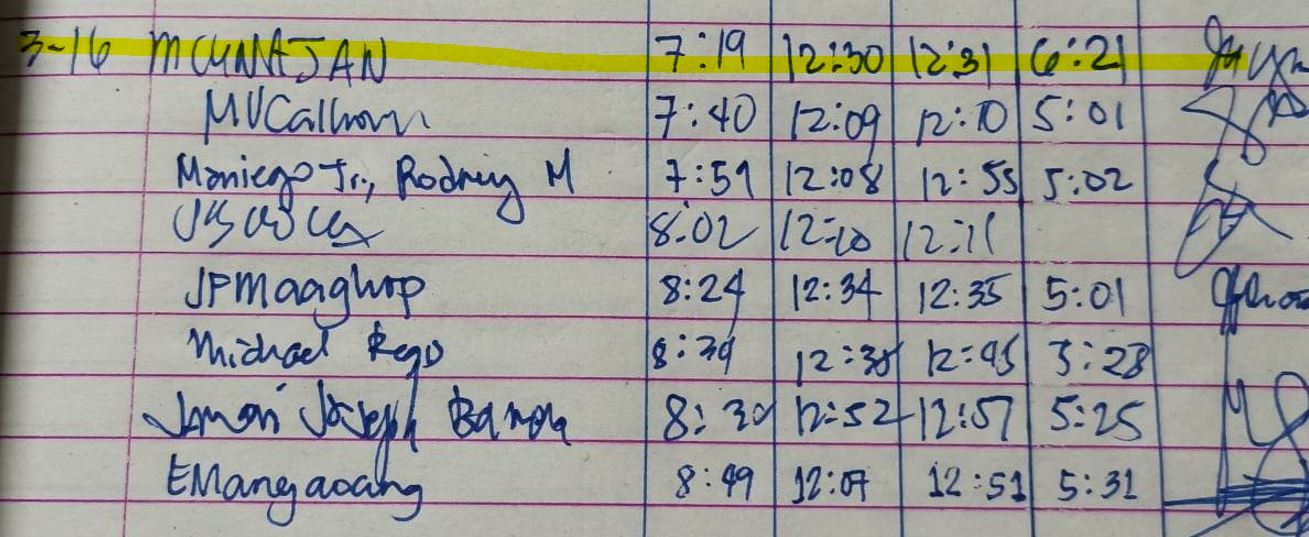 3-16 MCUNAJAN 7:19 12:30 12:31 6:21
MVCalhoun 7:40 12:09 12:10 5:01
Maniego Jr., Rodney M 7:59 12:08 12:55 5:02
8:02 12:10 12:11
JPMaaghop 8:24 12:34 12:35 5:01
Michael Rego 8:39 12:38 12:45 5:28
Joseph 8:30 12:52 12:57 5:25
EMangaoang 8:49 12:07 12:51 5:31